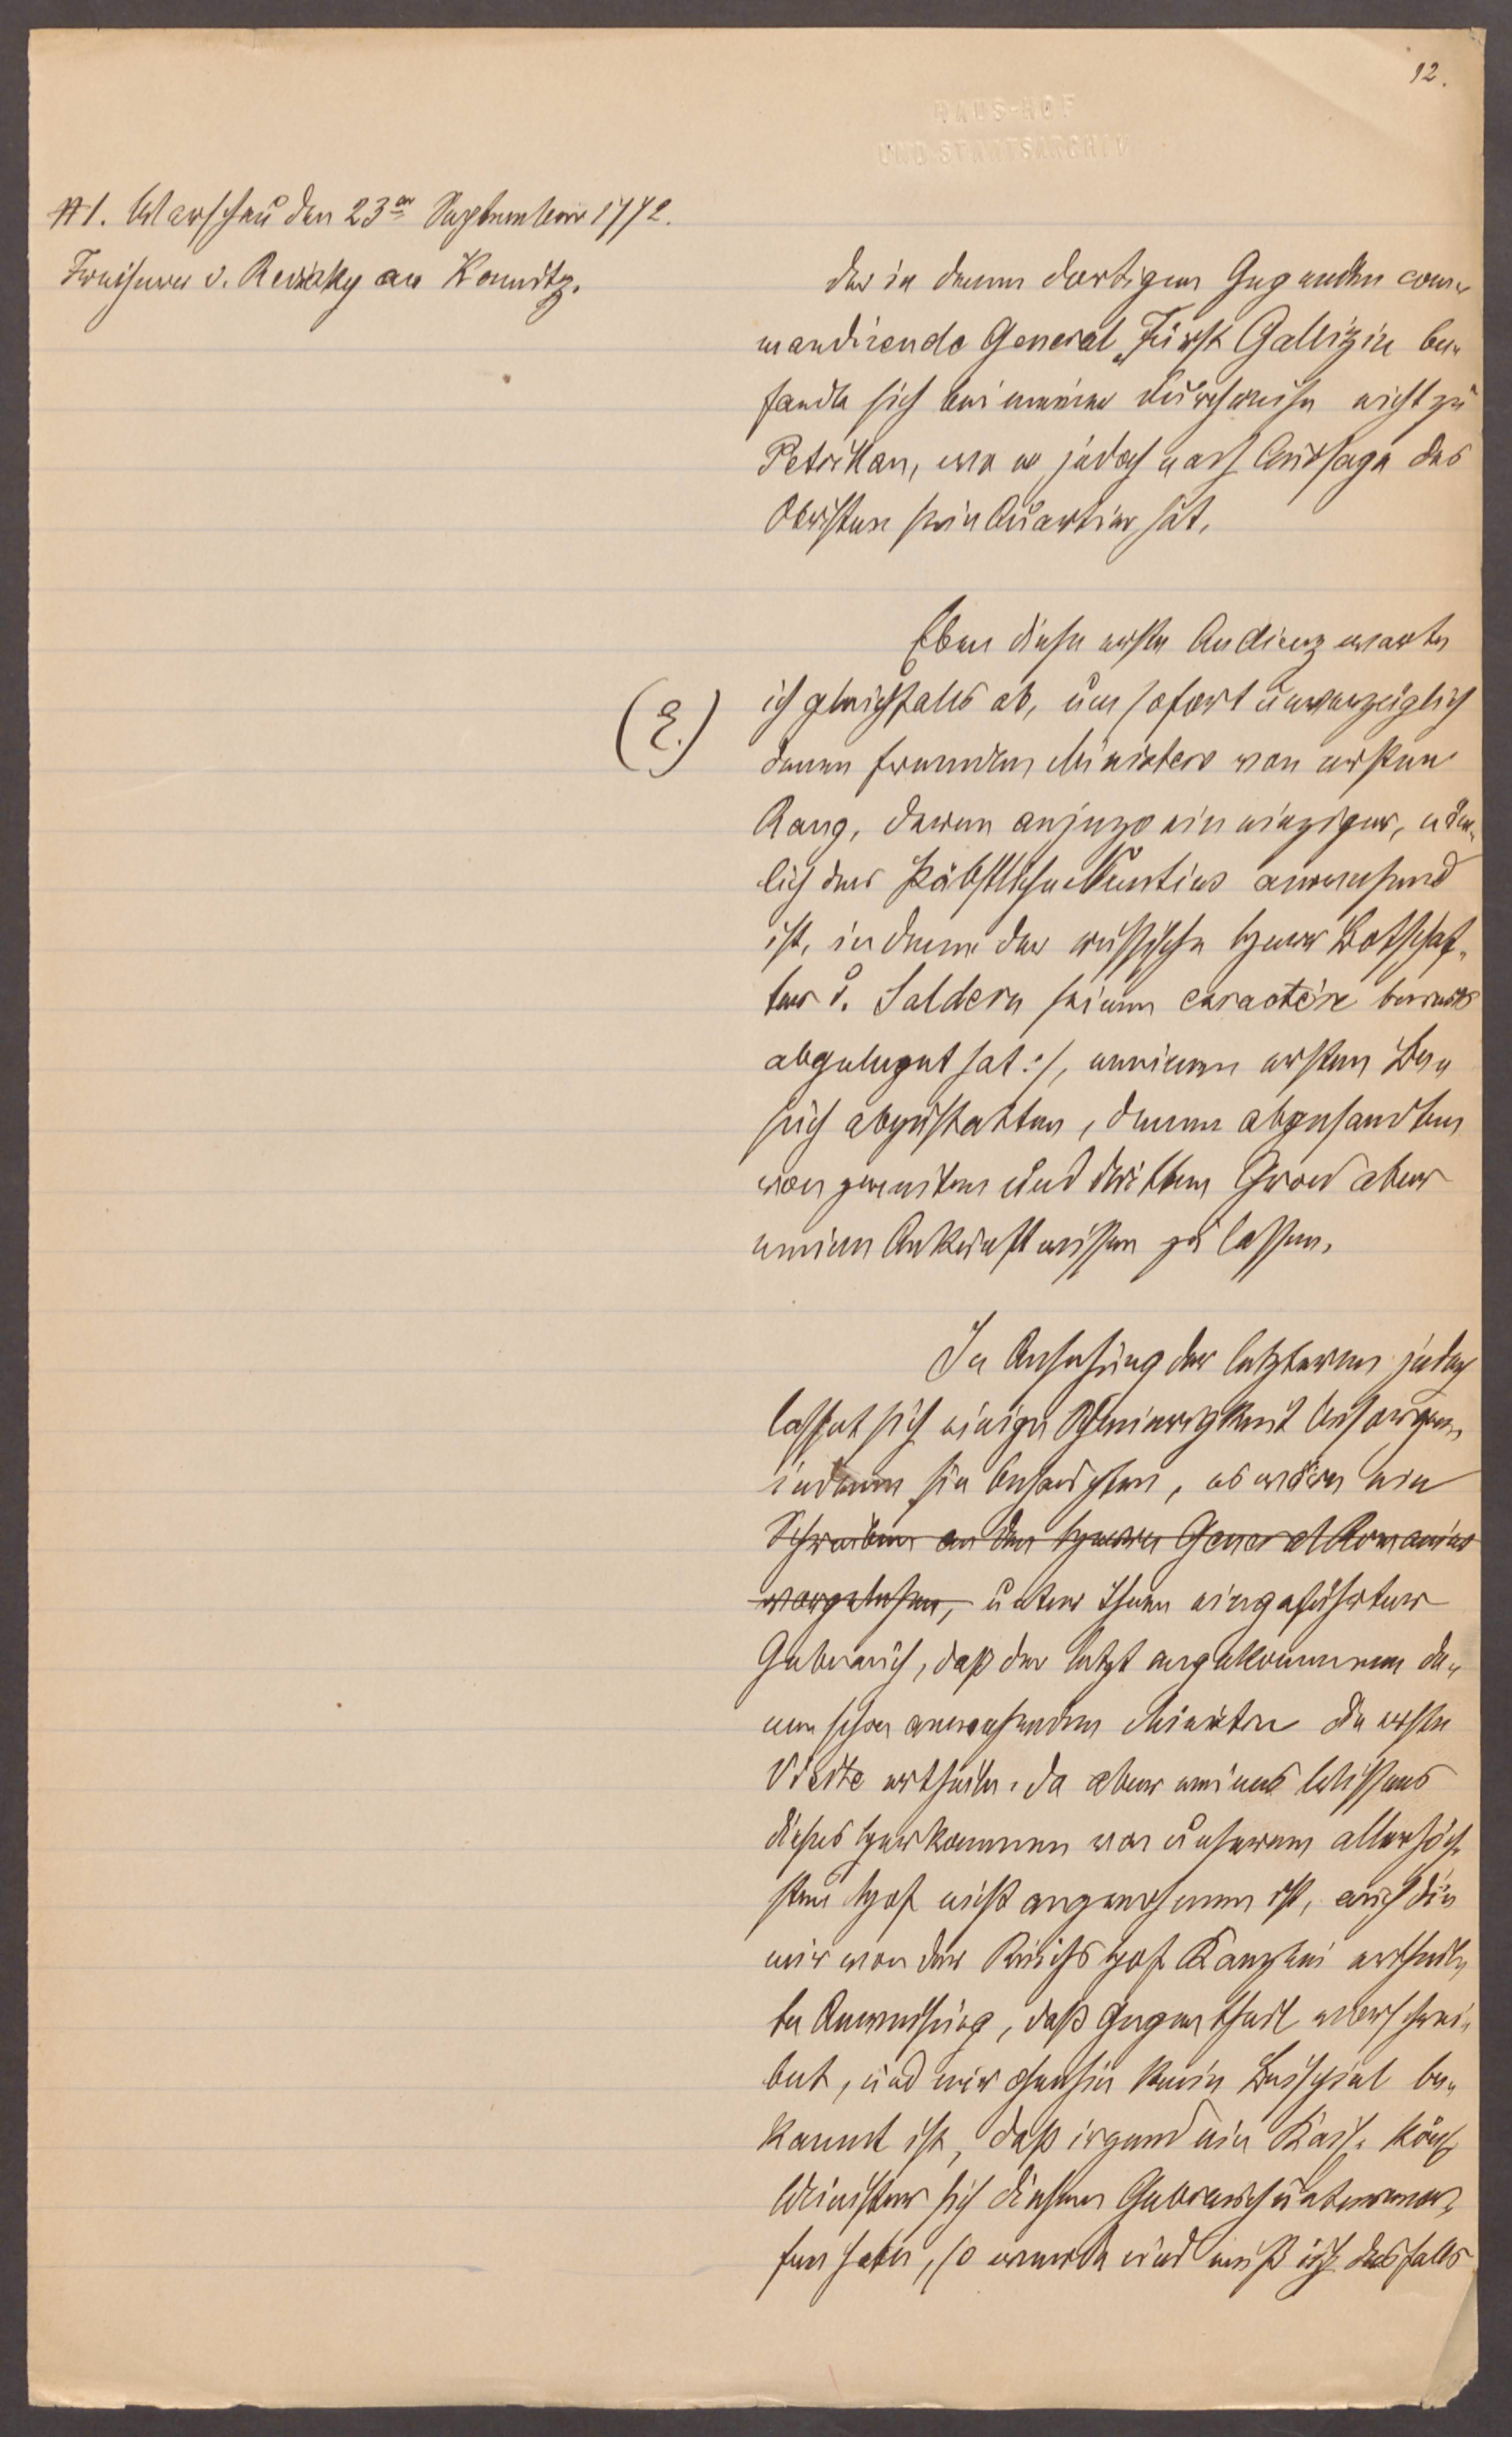 12.
HAUS-HOF
UND STAATSARCHIV
#1. Warschau den 23en September 1772.
Freiherr v. Revizky an Kaunitz.
der in denen dortigen Gegenden com-
mandirende General Fürst Gallizin be-
fande sich bei meiner Durchreise nicht zu
Petrikau, wo er jedoch nach Aussage des
Obristen sein Quartier hat.
Eben diese erste Audienz warte
(2.)
ich gleichfalls ab, um sofort unverzüglich
denen fremden Ministern von ersten
Rang, deren anjezo ein einziger, näm-
lich der Päbstliche Nuntius anwesend
ist, in deme der russische Herr Botschaf-
ter v. Saldern seinen caractère bereits
abgeleget hat :/, meinen ersten Be-
such abzustatten, denen abgesandten
von zweiten und dritten Grad aber
meine Ankunft wissen zu lassen.
In Ansehung der letzteren jedoch
lasset sich einige Schwierigkeit besorgen,
indeme sie behaupten, es wäre ein
Schreiben an den Herrn General Romanius
vorgelesen, unter ihnen eingeführter
Gebrauch, daß der letzt angekommene de-
nen schon anwesenden Ministern die erste
Visite ertheile. Da aber meines Wissens
dieses Herkommen von unserem allerhöch-
sten Hof nicht angenehmen ist, auch die
mir von der Reichs Hof Kanzlei ertheil-
te Anweisung, daß Gegentheil vorschrei-
bet, und mir ohnehin kein Beispiel be-
kannt ist, daß irgend ein Kais. Köng.
Minister sich diesem Gebrauch unterwor-
fen habe, so werde und muß ich desfalls